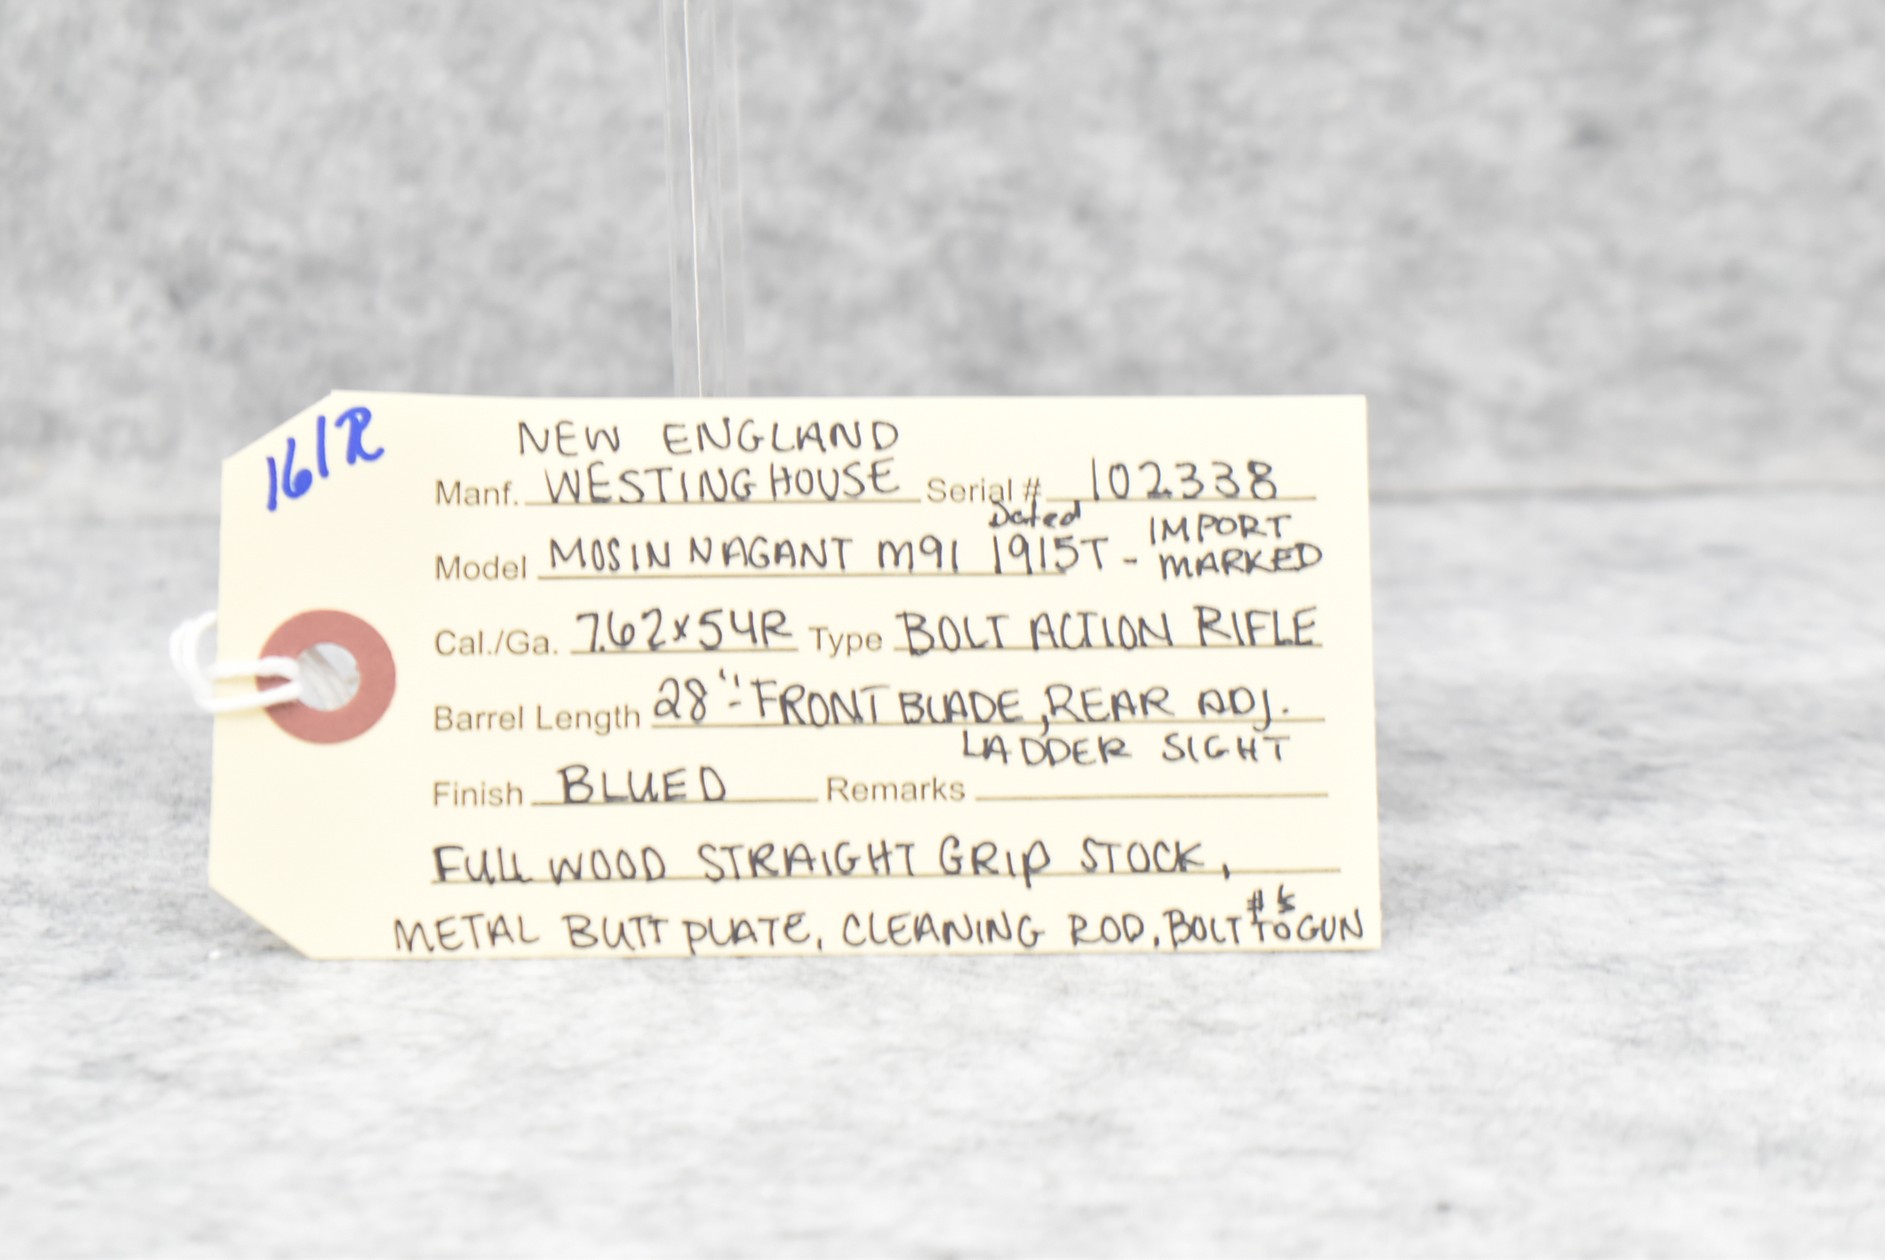 161R
NEW ENGLAND
Manf. WESTINGHOUSE Serial # 102338
Dated IMPORT
Model MOSIN NAGANT M91 1915T - MARKED
Cal./Ga. 7.62x54R Type BOLT ACTION RIFLE
Barrel Length 28" - FRONT BLADE, REAR ADJ.
LADDER SIGHT
Finish BLUED Remarks
FULL WOOD STRAIGHT GRIP STOCK,
METAL BUTT PLATE, CLEANING ROD, BOLT #'s TO GUN